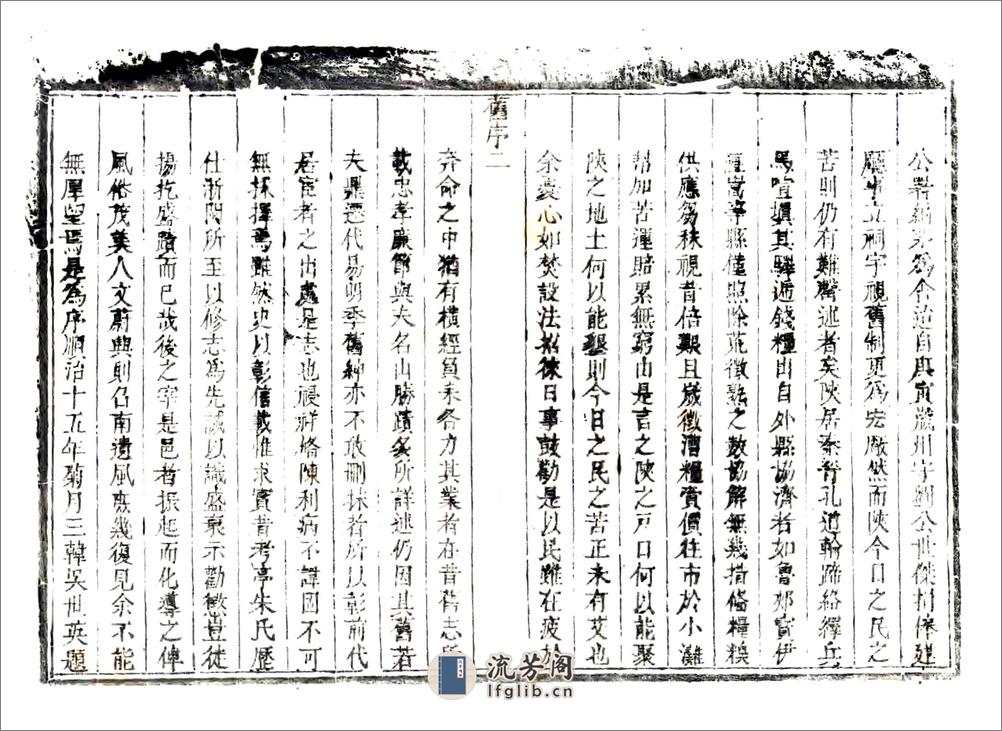 公對縉弟為令迨自庚寅嚴州守繩公世傑捐俸建
廳事立祠宇視舊制更為宏敞然而陝今日之民之
苦則仍有難罄述者矣陝居秦脊孔道輪蹄絡繹兵
馬喧填其驛遞錢糧出自外縣協濟者如魯郟寶伊
嵩等縣僅照除荒徵熟之數協解無幾措備糧糗
供應芻秣視昔倍艱且歲徵漕糧賫價往市於小灘
幫加苦運賠累無窮由是言之陝之戶口何以能聚
陝之地土何以能墾則今日之民之苦正未有艾也
余憂心如焚設法招徠日事鼓勸是以民雖在疲於
舊序二
奔命之中猶有橫經負耒各力其業者在昔舊志所
載忠孝廉節與夫名山勝蹟多所詳述仍因其舊若
夫鼎遷代易明季舊紳亦不敢刪抹者所以彰前代
居官者之出處是志也祲祥條陳利病不諱固不可
無採擇焉雖然史以彰信載惟求實昔考亭朱氏歷
仕浙閩所至以修志為先誠以識盛衰示勸懲豈徒
揚扢盛蹟而已哉後之宰是邑者振起而化導之俾
風俗茂美人文蔚興則召南遺風庶幾復見余不能
無厚望焉是為序順治十五年菊月三韓吳世英題
流芳閣
lfglib.cn